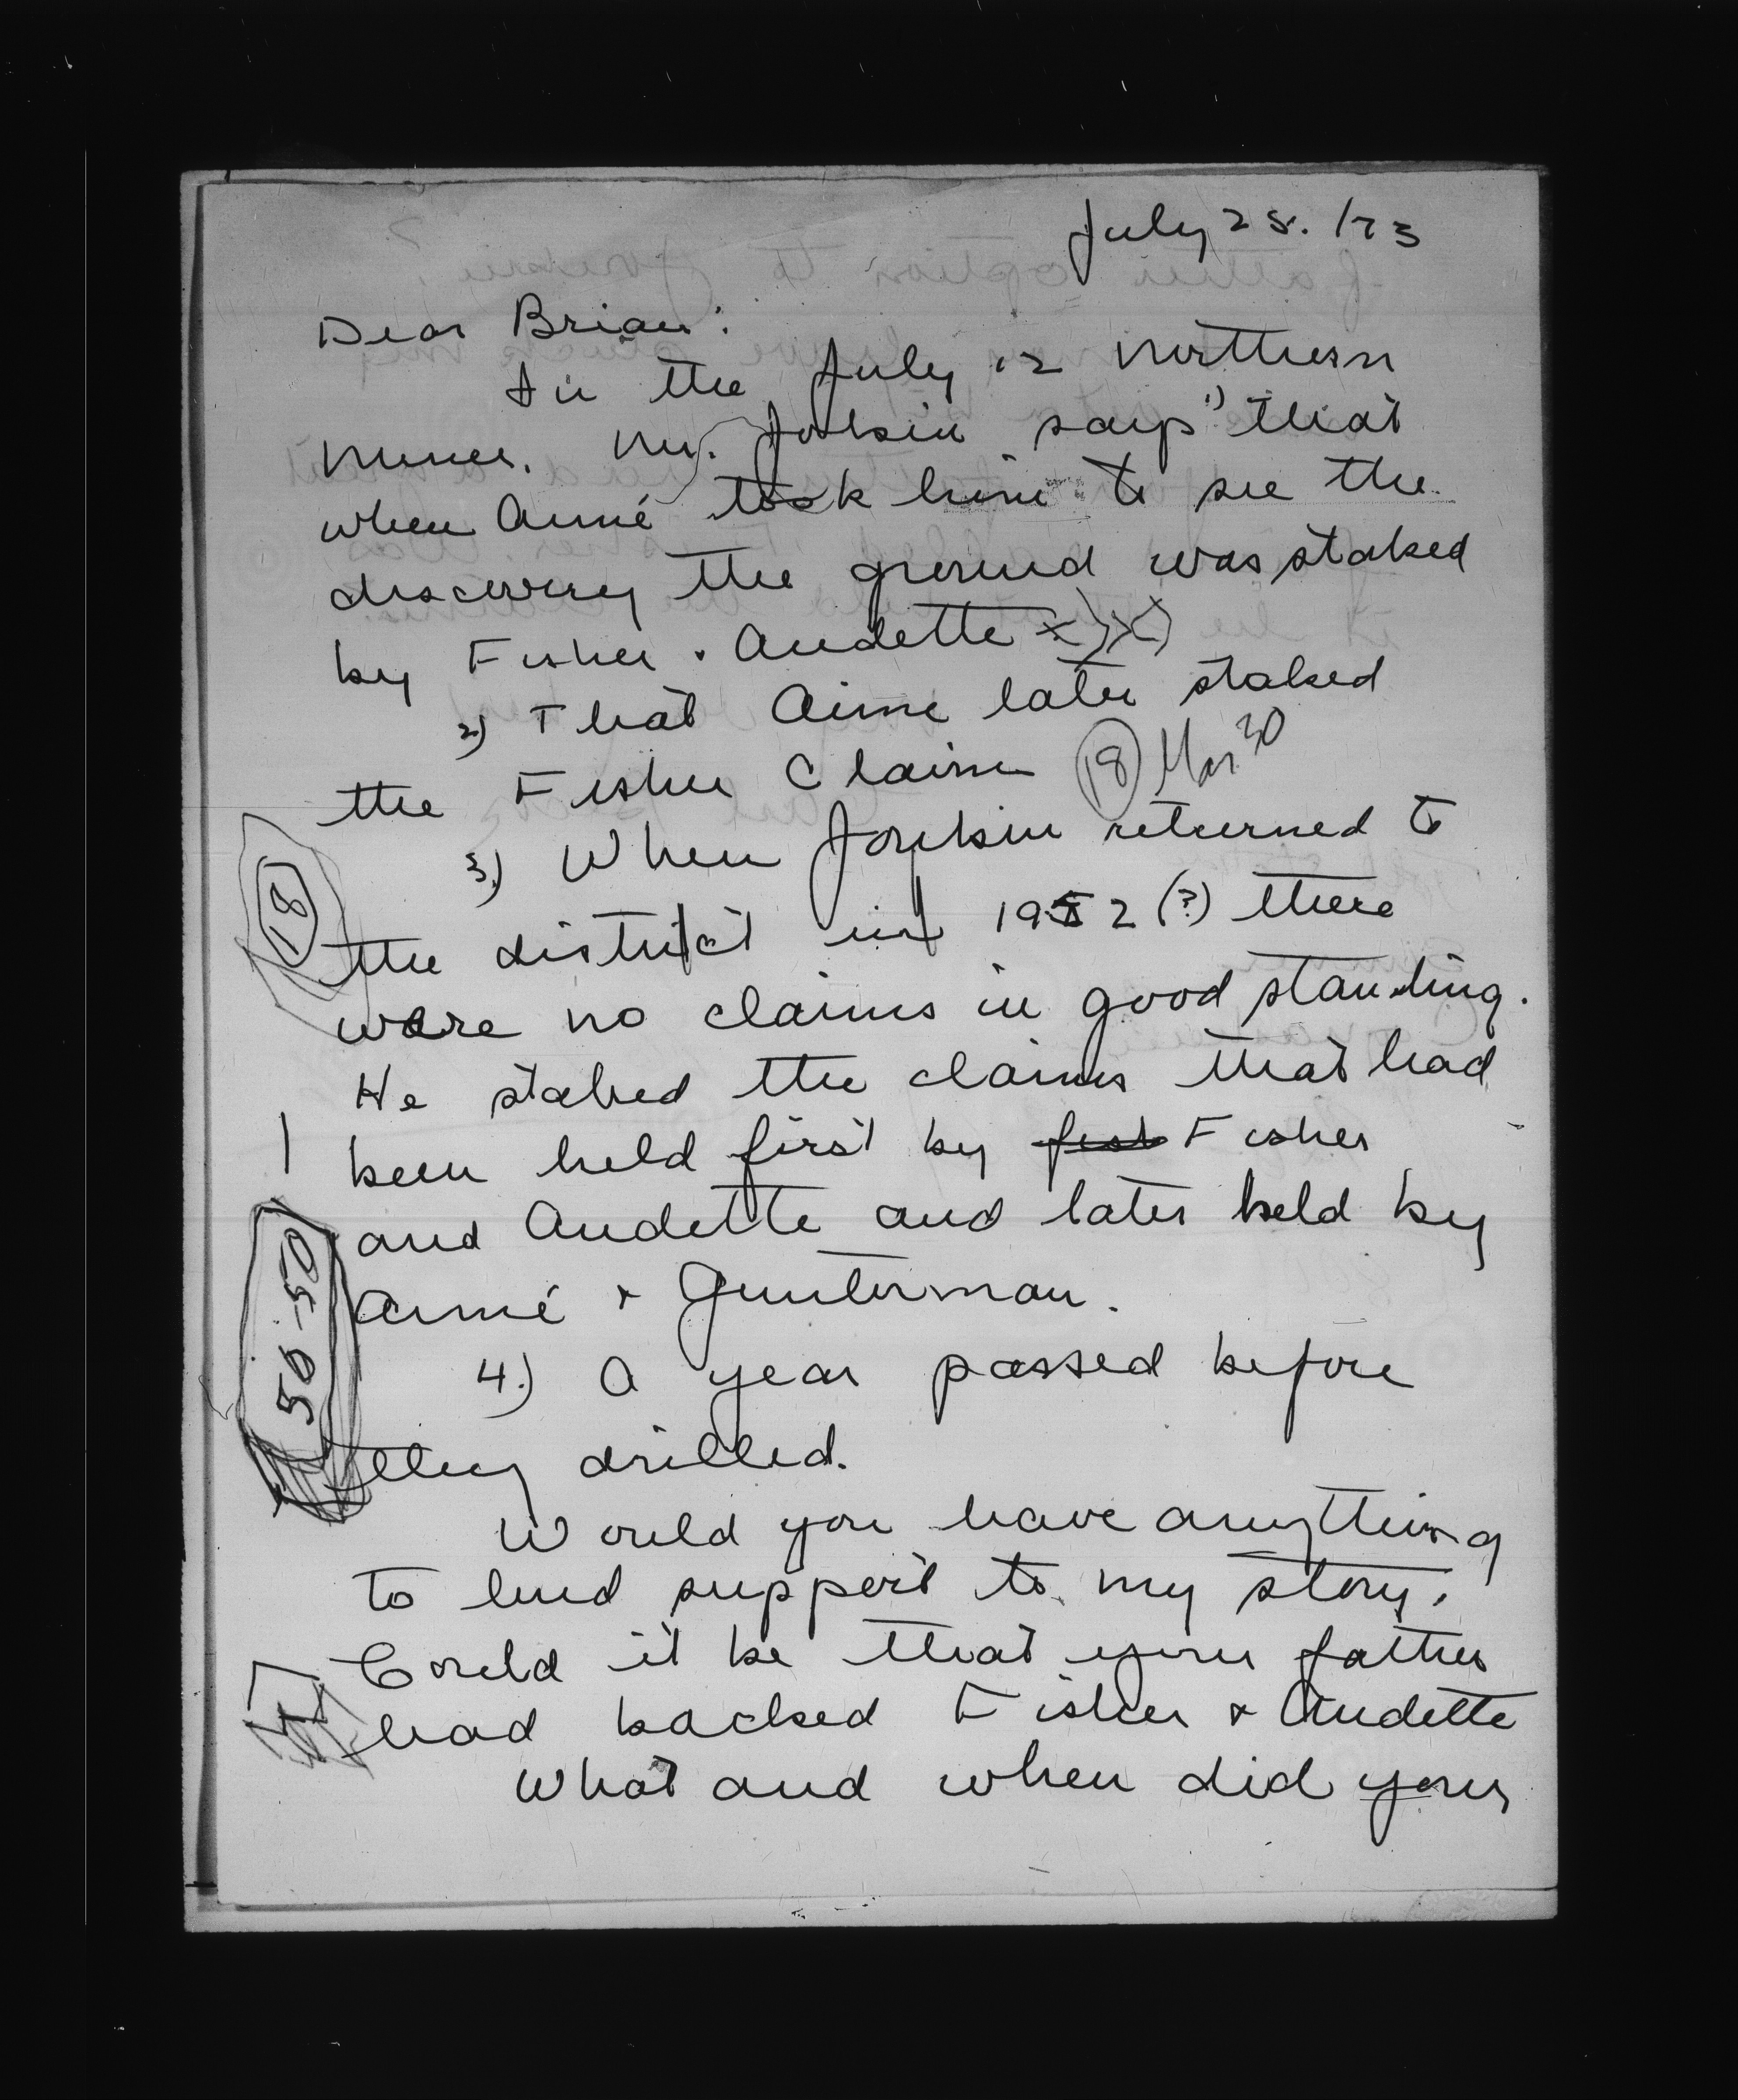 July 28. /73
Dear Brian:
In the July 12 Northern
Miner, Mr. Joubin says 1) that
when Aimé took him to see the
discovery the ground was staked
by Fisher & Audette
2) That Aime later staked
the Fisher Claim (18) Mar 30
3.) When Joubin returned to
the district in 1952 (?) there
were no claims in good standing.
He staked the claims that had
been held first by Fisher
and Audette and later held by
Aimé & Gunterman.
4.) A year passed before
they drilled.
Would you have anything
to lend support to my story.
Could it be that your father
had backed Fisher & Audette
What and when did your
18
50-50